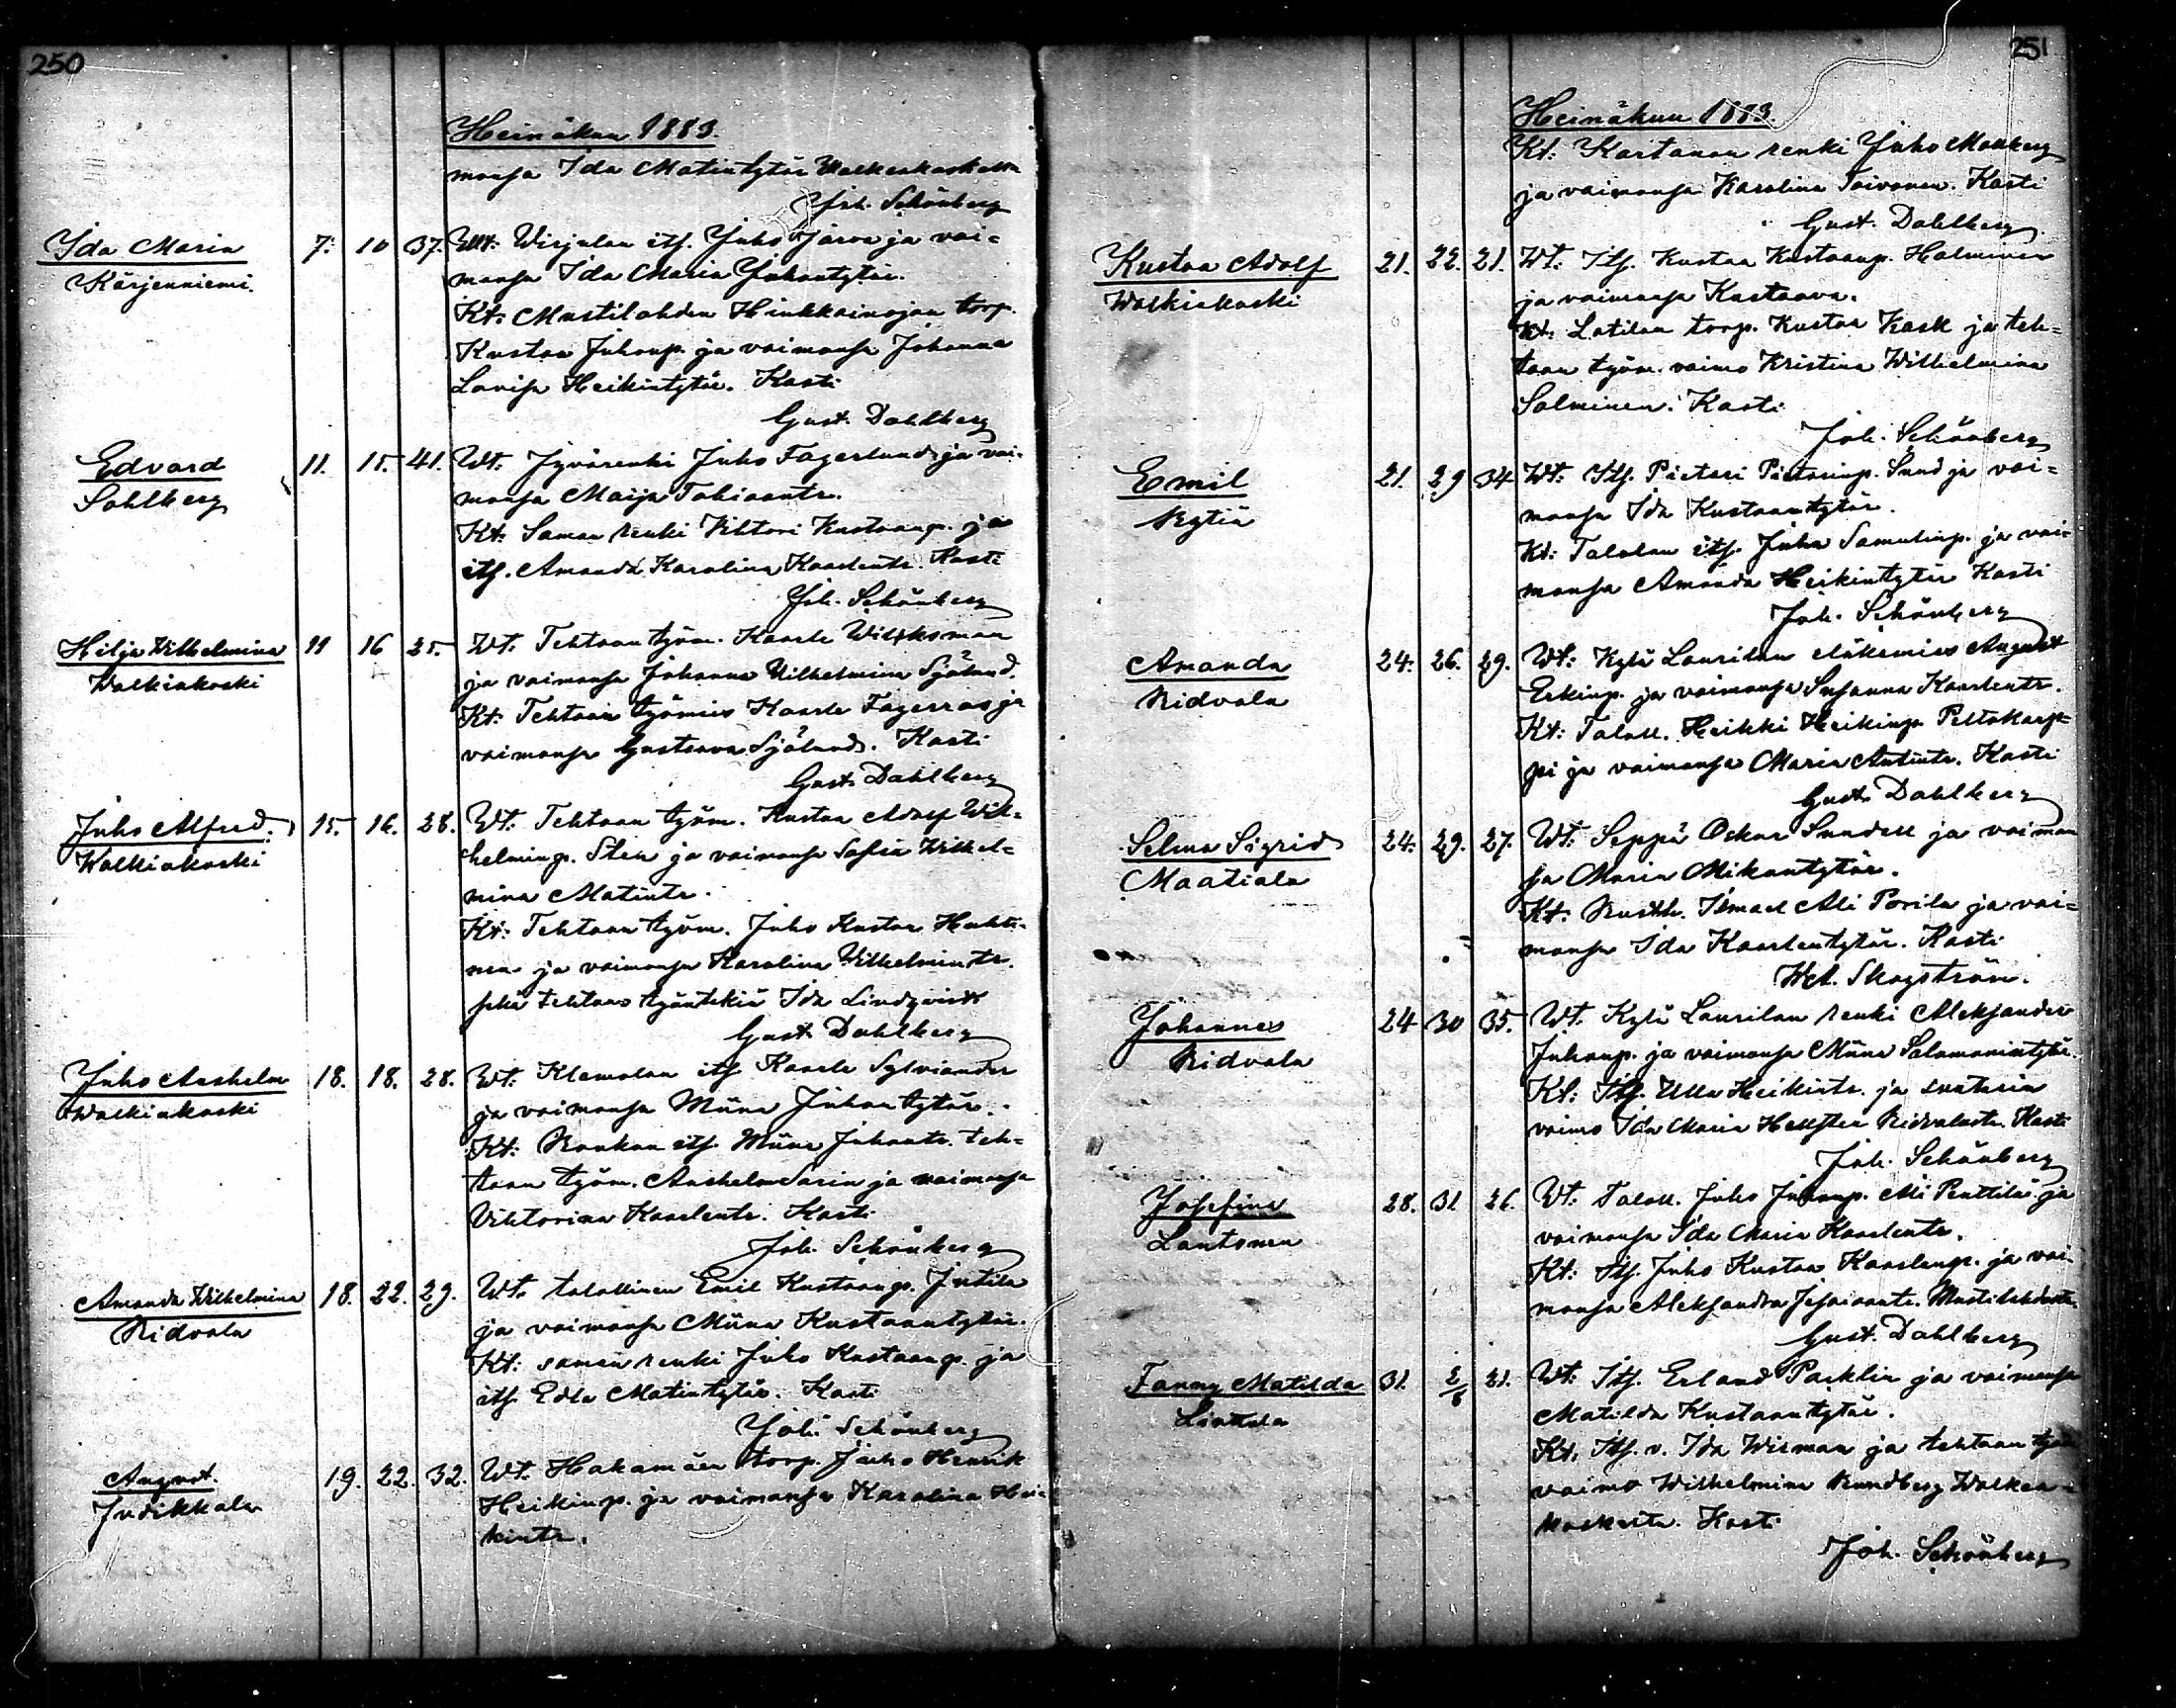 250
Heinäkuu 1883.
mansa Ida Matintytär Walkeakoskelta
Joh. Schönberg
Ida Maria 7. 10 37. Wt: Wirjulan itß. Juho Järva ja vai=
Kärjenniemi. mansa Ida Maria Juhontytär.
Kt: Mustilahden Hinkkainojan torp.
Kustaa Juhonp. ja vaimonsa Johanna
Lovisa Heikintytär. Kasti
Gust. Dahlberg
Edvard 11. 15. 41. Wt. Jyvärenki Juho Fagerlund ja vai=
Sahlberg monsa Maija Tobiaantr.
Kt: Saman renki Vihtori Kustaanp. ja
itß. Amanda Karolina Kaarlentr. Kasti
Joh. Schönberg
Hilja Wilhelmina 11 16 25. Wt. Tehtaan työm. Kaarle Wiliksman
Walkiakoski ja vaimonsa Johanna Vilhelmina Sjölund.
Kt: Tehtaan työmies Kaarle Fagerros ja
vaimonsa Gustaava Sjölund. Kasti
Gust. Dahlberg
Juho Alfred. 15. 16. 28. Wt. Tehtaan työm. Kustaa Adolf Wil=
Walkiakoski helminp. Sten ja vaimonsa Sofia Wilhel=
mina Matintr.
Kt: Tehtaan työm. Juho Kustaa Huhti=
nen ja vaimonsa Karolina Vilhelmintr.
sekä tehtaan työntekiä Ida Lindqvist
Gust Dahlberg
Juho Anshelm 18. 18. 28. Wt. Klemolan itß Kaarle Sylviander
Walkiakoski ja vaimonsa Miina Juhontytär.
Kt: Roukon itß. Miina Juhontr. teh=
taan työm. Anshelm Sarin ja vaimonsa
Vihtoriina Kaarlentr. Kasti
Joh. Schönberg
Amanda Wilhelmina 18. 22. 29. Wt. talollinen Emil Kustaanp. Jutila
Ridvala ja vaimonsa Miina Kustaantytär.
Kt: saman renki Juho Kustaanp. ja
itß. Edla Matintytär. Kasti
Joh. Schönberg
August. 19. 22. 32. Wt. Hakamäen torp. Juho Henrik
Judikkala Heikinp. ja vaimonsa Karolina Hei=
kintr.
251
Heinäkuu 1883.
Kt: Kartanon renki Juho Manberg
ja vaimonsa Karolina Toivonen. Kasti
Gust. Dahlberg
Kustaa Adolf 21. 22. 21. Wt. Itß. Kustaa Kustaanp. Halminen
Walkiakoski ja vaimonsa Kustaava.
Kt. Lotilan torp. Kustaa Kask ja teh=
taan työm. vaimo Kristina Wilhelmina
Salminen. Kasti
Joh. Schönberg
Emil 21. 29 34 Wt: Itß. Pietari Pietarinp. Sund ja vai=
Rytiä monsa Ida Kustaantytär.
Kt: Talolan itß. Juha Samulinp. ja vai=
monsa Amanda Heikintytär Kasti
Joh. Schönberg
Amanda 24. 26. 29. Wt: Kylä Laurilan eläkemies August
Ridvala Erkinp. ja vaimonsa Susanna Kaarlentr.
Kt: Taloll. Heikki Heikinp. Peltokorp=
pi ja vaimonsa Maria Antintr. Kasti
Gust. Dahlberg
Selma Sigrid 24. 29. 27. Wt: Seppä Oskar Sundell ja vaimon
Maatiala sa Maria Mikontytär.
Kt: Rusth. Ismael Ali Porila ja vai=
monsa Ida Kaarlentytär. Kasti
Skogström.
Johannes 24 30 35. Wt. Kylä Laurilan renki Aleksander
Ridvala Juhonp. ja vaimonsa Miina Salomonintytär.
Kt: Itß. Ulla Heikintr. ja suutarin
vaimo Ida Maria Hellsten Ridvalasta. Kasti
Joh. Schönberg
Josefina 28. 31 26. Wt. Taloll. Juho Juhonp. Ali Penttilä ja
Lontonen vaimonsa Ida Maria Kaarlentr.
Kt: Itß. Juho Kustaa Kaarlenp. ja vai
monsa Aleksandra Jesaiaantr. Mustilahdesta.
Gust. Dahlberg
Fanny Matilda 31. 2/8 21. Wt. Itß. Erland Packlin ja vaimonsa
Linttula Matilda Kustaantytär.
Kt. Itß. v. Ida Wirman ja tehtaan työm
vaimo Wilhelmina Rundberg Walkea=
koskelta. Kasti
Joh. Schönberg